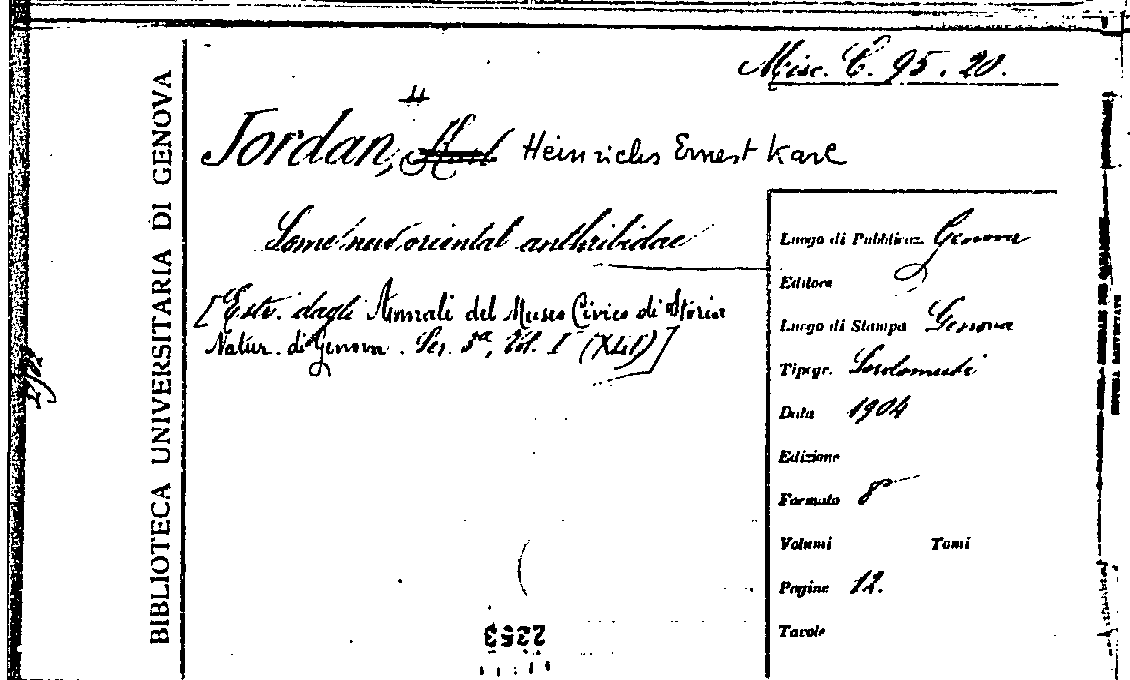 Misc. C. 95. 20.
Jordan, Karl Heinrichs Ernest Karl
Some new oriental anthribidae
[Estr. dagli Annali del Museo Civico di Storia
Natur. di Genova. Ser. 3ª, Vol. I (XLI)]
BIBLIOTECA UNIVERSITARIA DI GENOVA
Luogo di Pubblicaz. Genova
Editore
Luogo di Stampa Genova
Tipogr.
Data 1904
Edizione
Formato 8°
Volumi Tomi
Pagine 12.
Tavole
2353